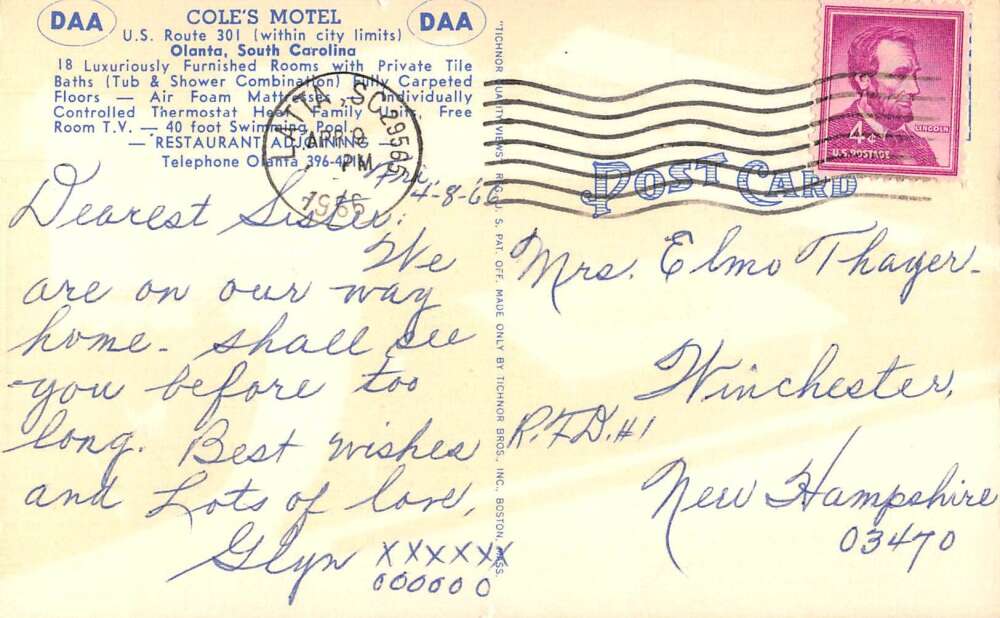 DAA
COLE'S MOTEL
DAA
U.S. Route 301 (within city limits)
Olanta, South Carolina
18 Luxuriously Furnished Rooms with Private Tile
Baths (Tub & Shower Combination) Fully Carpeted
Floors — Air Foam Mattresses — Individually
Controlled Thermostat Heat Family Free
Room T.V. — 40 foot Swimming Pool
— RESTAURANT ADJOINING —
Telephone Olanta
LATTA, SC 29565
APR 9
PM
1966
4-8-66
Dearest Sister,
We
are on our way
home - shall see
you before too
long. Best wishes
and Lots of love,
Glyn XXXXXX
OOOOOO
"TICHNOR QUALITY VIEWS" REG. U. S. PAT. OFF. MADE ONLY BY TICHNOR BROS., INC., BOSTON, MASS.
4¢
LINCOLN
U.S. POSTAGE
POST CARD
Mrs. Elmo Thayer-
Winchester,
R.F.D. #1
New Hampshire
03470